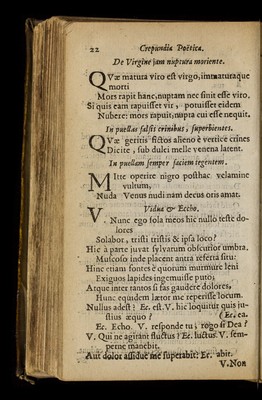 22 Crepundia Poëtica.
De Virgine jam nuptura moriente.
QVæ matura viro est virgo, immaturaque
morti
Mors rapit hanc, nuptam nec sinit esse viro.
Si quis eam rapuisset vir, potuisset eidem
Nubere: mors rapuit, nupta cui esse nequit.
In puellas falsis crinibus, superbientes.
QVæ geritis fictos alieno è vertice crines
Dicite, sub dulci melle venena latent.
In puellam semper faciem tegentem.
MItte operire nigro posthac velamine
vultum,
Nuda Venus nudi nam decus oris amat.
Vidua & Eccho.
V. Nunc ego sola meos hic nullo teste do-
lores
Solabor, tristi tristis & ipsa loco?
Hic à parte juvat sylvarum obscurior umbra.
Muscoso inde placent antra referta situ:
Hinc etiam fontes è quorum murmure leni
Exiguos lapides ingemuisse puto,
Atque inter tantos si fas gaudere dolores,
Hunc equidem lætor me reperisse locum.
Nullus adest? Ec. est. V. hic loquitur quis ju-
stius æquo? (Ec. ea.
Ec. Echo. V. responde tu, rogo si Dea?
V. Qui ne agirani fluctus? Ec. luctus. V. sem-
perne manebit.
Aut dolor assiduè me superabit? Ec. abit.
V. Non